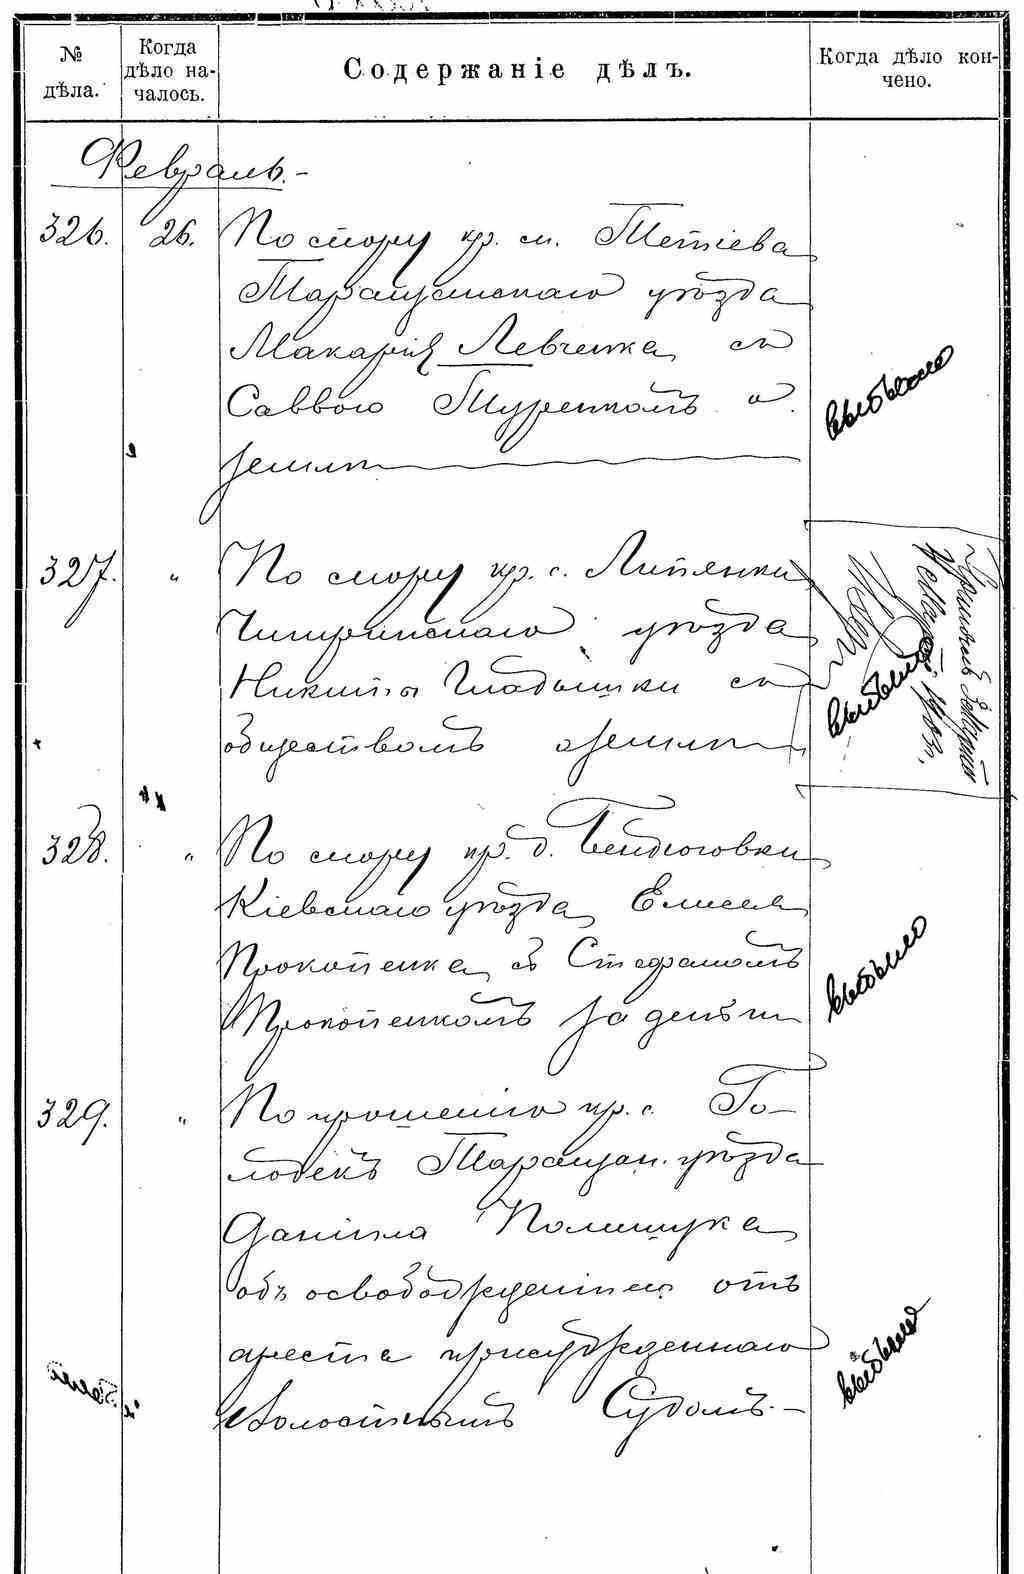 № дѣла.
Когда дѣло началось.
Содержаніе дѣлъ.
Когда дѣло кончено.
Февраль.-
326. 26. По спору кр. м. Тетіева
Таращанскаго уѣзда
Макарія Левченка съ
Саввою Туренкомъ о
землѣ
выбыло
327. " По спору кр. с. Липянки
Чигиринскаго уѣзда
Никиты Гладышки съ
обществомъ о землѣ
выбыло
328. " По спору кр. д. Бендюговки
Кіевскаго уѣзда Елисея
Прокопенка съ Стефаномъ
Прокопенкомъ за деньги
выбыло
329. " По прошенію кр. с. Го-
лодекъ Таращан. уѣзда
Даніила Полищука
объ освобожденіи отъ
ареста присужденнаго
Волостнымъ Судомъ.-
выбыло